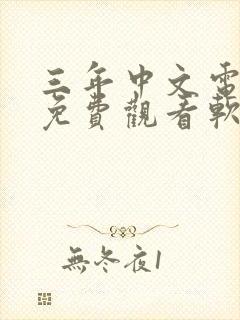 三年中文電
免費觀看軟
無冬夜1